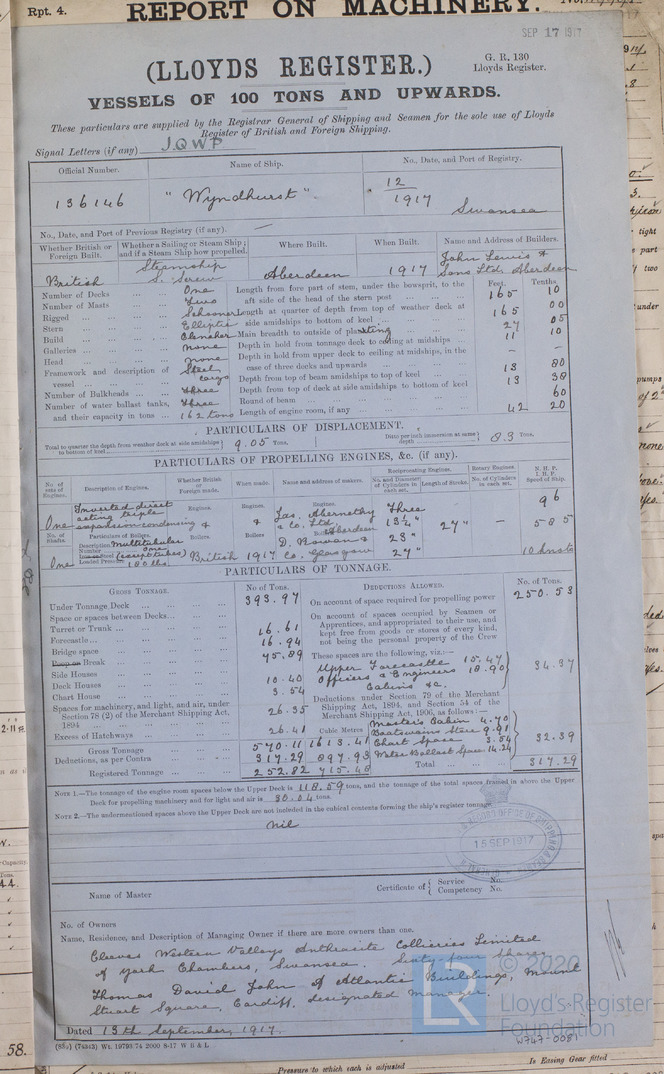 Rpt. 4. REPORT ON MACHINERY.
SEP 17 1917
G. R. 130
Lloyds Register.
(LLOYDS REGISTER.)
VESSELS OF 100 TONS AND UPWARDS.
These particulars are supplied by the Registrar General of Shipping and Seamen for the sole use of Lloyds
Register of British and Foreign Shipping.
Signal Letters (if any) J.Q.W.P
Official Number. Name of Ship. No., Date, and Port of Registry.
136146 "Wyndhurst" 12
1917
Swansea
No., Date, and Port of Previous Registry (if any).
Whether British or Foreign Built. Whether a Sailing or Steam Ship; and if a Steam Ship how propelled. Where Built. When Built. Name and Address of Builders.
British Steamship S. Screw Aberdeen 1917 John Lewis & Sons Ltd, Aberdeen
Feet. Tenths.
Number of Decks One Length from fore part of stem, under the bowsprit, to the
aft side of the head of the stern post 165 10
Number of Masts Two
Rigged Schooner Length at quarter of depth from top of weather deck at
side amidships to bottom of keel 165 00
Stern Elliptic
Build Clencher Main breadth to outside of plating 27 05
Galleries none Depth in hold from tonnage deck to ceiling at midships 11 10
Head none Depth in hold from upper deck to ceiling at midships, in the
case of three decks and upwards – –
Framework and description of vessel Steel cargo
Depth from top of beam amidships to top of keel 13 80
Number of Bulkheads Three Depth from top of deck at side amidships to bottom of keel 13 38
Number of water ballast tanks, Three Round of beam 60
and their capacity in tons 162 tons Length of engine room, if any 42 20
PARTICULARS OF DISPLACEMENT.
Total to quarter the depth from weather deck at side amidships to bottom of keel 9.05 Tons. Ditto per inch immersion at same depth 8.3 Tons.
PARTICULARS OF PROPELLING ENGINES, &c. (if any).
No. of sets of Engines. Description of Engines. Whether British or Foreign made. When made. Name and address of makers. Reciprocating Engines. Rotary Engines. N. H. P.
No. and Diameter of Cylinders in each set. Length of Stroke. No. of Cylinders in each set. I. H. P.
Speed of Ship.
One Inverted direct acting triple expansion condensing Engines. & Engines. & Engines. Jas. Abernethy & Co. Ltd Aberdeen Three 13½" 23" 27" – 96
585
No. of Shafts. Particulars of Boilers. Boilers Boilers
One Description Multitubular Number one Loaded Pressure 180 lbs British 1917 D. Rowan & Co. Glasgow 27" 10 knots
PARTICULARS OF TONNAGE.
GROSS TONNAGE. No of Tons. DEDUCTIONS ALLOWED. No. of Tons.
Under Tonnage Deck 393.97 On account of space required for propelling power 250.53
Space or spaces between Decks
On account of spaces occupied by Seamen or
Apprentices, and appropriated to their use, and
kept free from goods or stores of every kind,
not being the personal property of the Crew
Turret or Trunk
Forecastle 16.61
Bridge space 16.94
Poop or Break 45.89 These spaces are the following, viz.:—
Side Houses Upper Forecastle 15.47
Deck Houses 10.40 Officers & Engineers 18.90 34.37
Chart House 3.54 Cabins &c.
Spaces for machinery, and light, and air, under
Section 78 (2) of the Merchant Shipping Act,
1894 26.35
Deductions under Section 79 of the Merchant
Shipping Act, 1894, and Section 54 of the
Merchant Shipping Act, 1906, as follows:—
Excess of Hatchways 26.41 Cubic Metres Master's Cabin 4.70
Boatswains Store 9.91
Gross Tonnage 540.11 1613.41 Chart Space 3.54 32.39
Deductions, as per Contra 317.29 897.93 Water Ballast Space 14.24
Registered Tonnage 252.82 715.48 Total 317.29
NOTE 1.—The tonnage of the engine room spaces below the Upper Deck is 118.59 tons, and the tonnage of the total spaces framed in above the Upper
Deck for propelling machinery and for light and air is 30.04 tons.
NOTE 2.—The undermentioned spaces above the Upper Deck are not included in the cubical contents forming the ship's register tonnage:
nil
15 SEP 1917
Name of Master Certificate of Service No.
Competency No.
No. of Owners
Name, Residence, and Description of Managing Owner if there are more owners than one.
Cleaves Western Valleys Anthracite Collieries Limited
of York Chambers, Swansea. Sixty-four shares
Thomas David John of Atlantic Buildings, Mount
Stuart Square, Cardiff, designated manager.
Dated 13th September, 1917.
(882) (78343) Wt. 19798/74 2000 8-17 W B & L
LR
© 2020
Lloyd's Register
Foundation
W747-0081
58.
Pressure to which each is adjusted
Is Easing Gear fitted